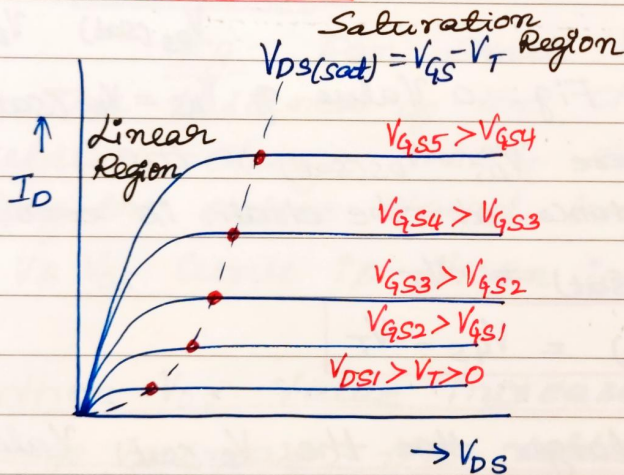 Saturation
Region
V_DS(sat) = V_GS - V_T
Linear
Region
I_D
V_GS5 > V_GS4
V_GS4 > V_GS3
V_GS3 > V_GS2
V_GS2 > V_GS1
V_DS1 > V_T > 0
→ V_DS